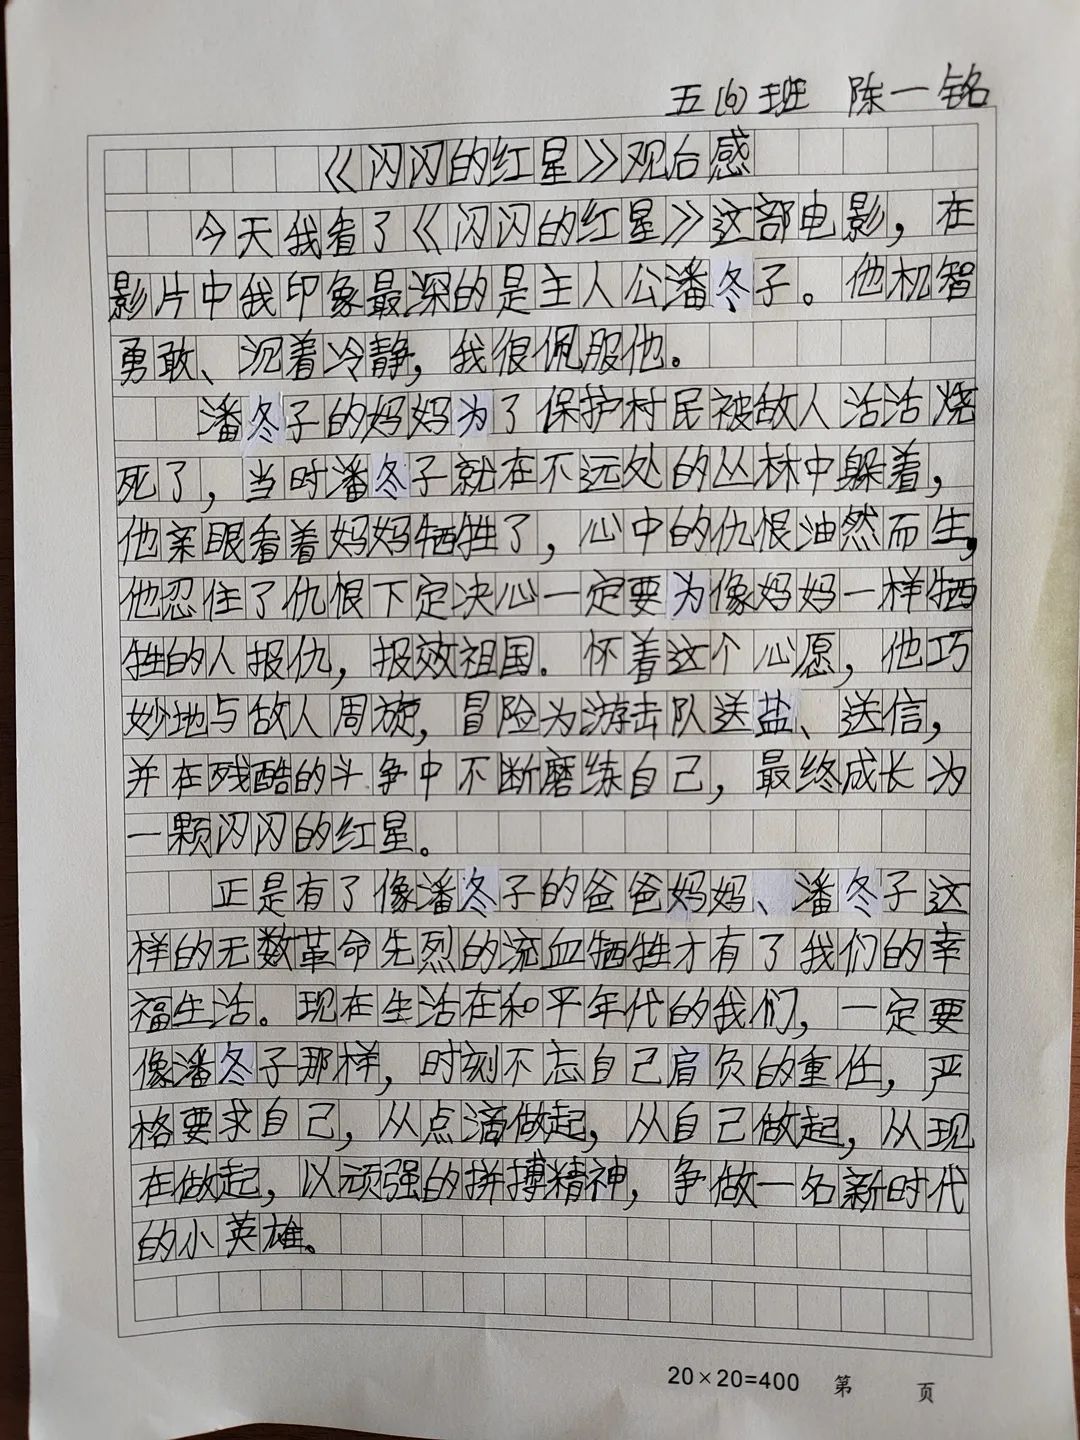 五(6)班 陈一铭
《闪闪的红星》观后感
今天我看了《闪闪的红星》这部电影，在
影片中我印象最深的是主人公潘冬子。他机智
勇敢、沉着冷静，我很佩服他。
潘冬子的妈妈为了保护村民被敌人活活烧
死了，当时潘冬子就在不远处的丛林中躲着，
他亲眼看着妈妈牺牲了，心中的仇恨油然而生，
他忍住了仇恨下定决心一定要为像妈妈一样牺
牲的人报仇，报效祖国。怀着这个心愿，他巧
妙地与敌人周旋，冒险为游击队送盐、送信，
并在残酷的斗争中不断磨练自己，最终成长为
一颗闪闪的红星。
正是有了像潘冬子的爸爸妈妈、潘冬子这
样的无数革命先烈的流血牺牲才有了我们的幸
福生活。现在生活在和平年代的我们，一定要
像潘冬子那样，时刻不忘自己肩负的重任，严
格要求自己，从点滴做起，从自己做起，从现
在做起，以顽强的拼搏精神，争做一名新时代
的小英雄。
20×20=400 第 页